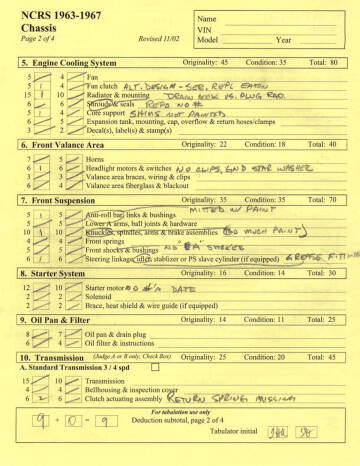 NCRS 1963-1967
Chassis
Page 2 of 4 Revised 11/02
Name
VIN
Model Year
5. Engine Cooling System Originality: 45 Condition: 35 Total: 80
5 4 Fan
5 4 Fan clutch ALT. DESIGN - SER. REPL EATON
15 10 Radiator & mounting DRAIN VS. PLUG RAD.
6 5 Shrouds & seals REPO NO #
5 4 Core support SHIMS NOT PAINTED
6 5 Expansion tank, mounting, cap, overflow & return hoses/clamps
3 2 Decal(s), label(s) & stamp(s)
6. Front Valance Area Originality: 22 Condition: 18 Total: 40
7 5 Horns
6 5 Headlight motors & switches NO CLIPS, GND STAR WASHER
3 4 Valance area braces, wiring & clips
6 4 Valance area fiberglass & blackout
7. Front Suspension Originality: 35 Condition: 35 Total: 70
5 5 Anti-roll bar, links & bushings W/ PAINT
5 5 Lower A arms, ball joints & hardware
10 10 Knuckles, spindles, arms & brake assemblies (TOO MUCH PAINT)
4 4 Front springs
5 5 Front shocks & bushings NO
6 6 Steering linkage, idler, stablizer or PS slave cylinder (if equipped) GREASE FITTING
8. Starter System Originality: 16 Condition: 14 Total: 30
12 10 Starter motor NO DATE
2 2 Solenoid
2 2 Brace, heat shield & wire guide (if equipped)
9. Oil Pan & Filter Originality: 14 Condition: 11 Total: 25
8 7 Oil pan & drain plug
6 4 Oil filter & instructions
10. Transmission (Judge A or B only, Check Box) Originality: 25 Condition: 20 Total: 45
A. Standard Transmission 3 / 4 spd
15 10 Transmission
4 4 Bellhousing & inspection cover
6 6 Clutch actuating assembly RETURN SPRING MISSING
For tabulation use only
9 + 0 - 9 Deduction subtotal, page 2 of 4
Tabulator initial